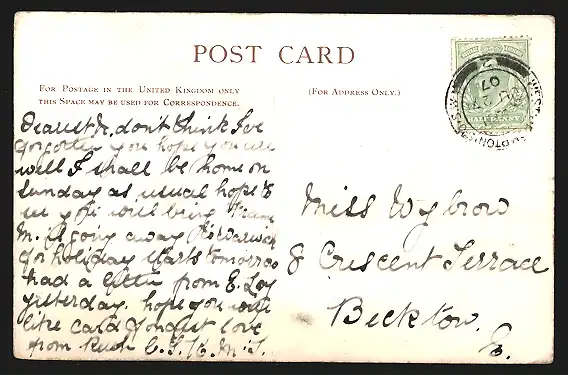 POST CARD
FOR POSTAGE IN THE UNITED KINGDOM ONLY
THIS SPACE MAY BE USED FOR CORRESPONDENCE.
(FOR ADDRESS ONLY.)
Dearest don't think I've
forgotten you hope you are
well I shall be home on
Sunday as usual hope to
see you will bring
M. is going away
for holiday starts tomorrow
had a letter from E. Loy
yesterday. hope you will
like card fondest love
from
Miss Wybrow
8 Crescent Terrace
Beckton.
E.
07